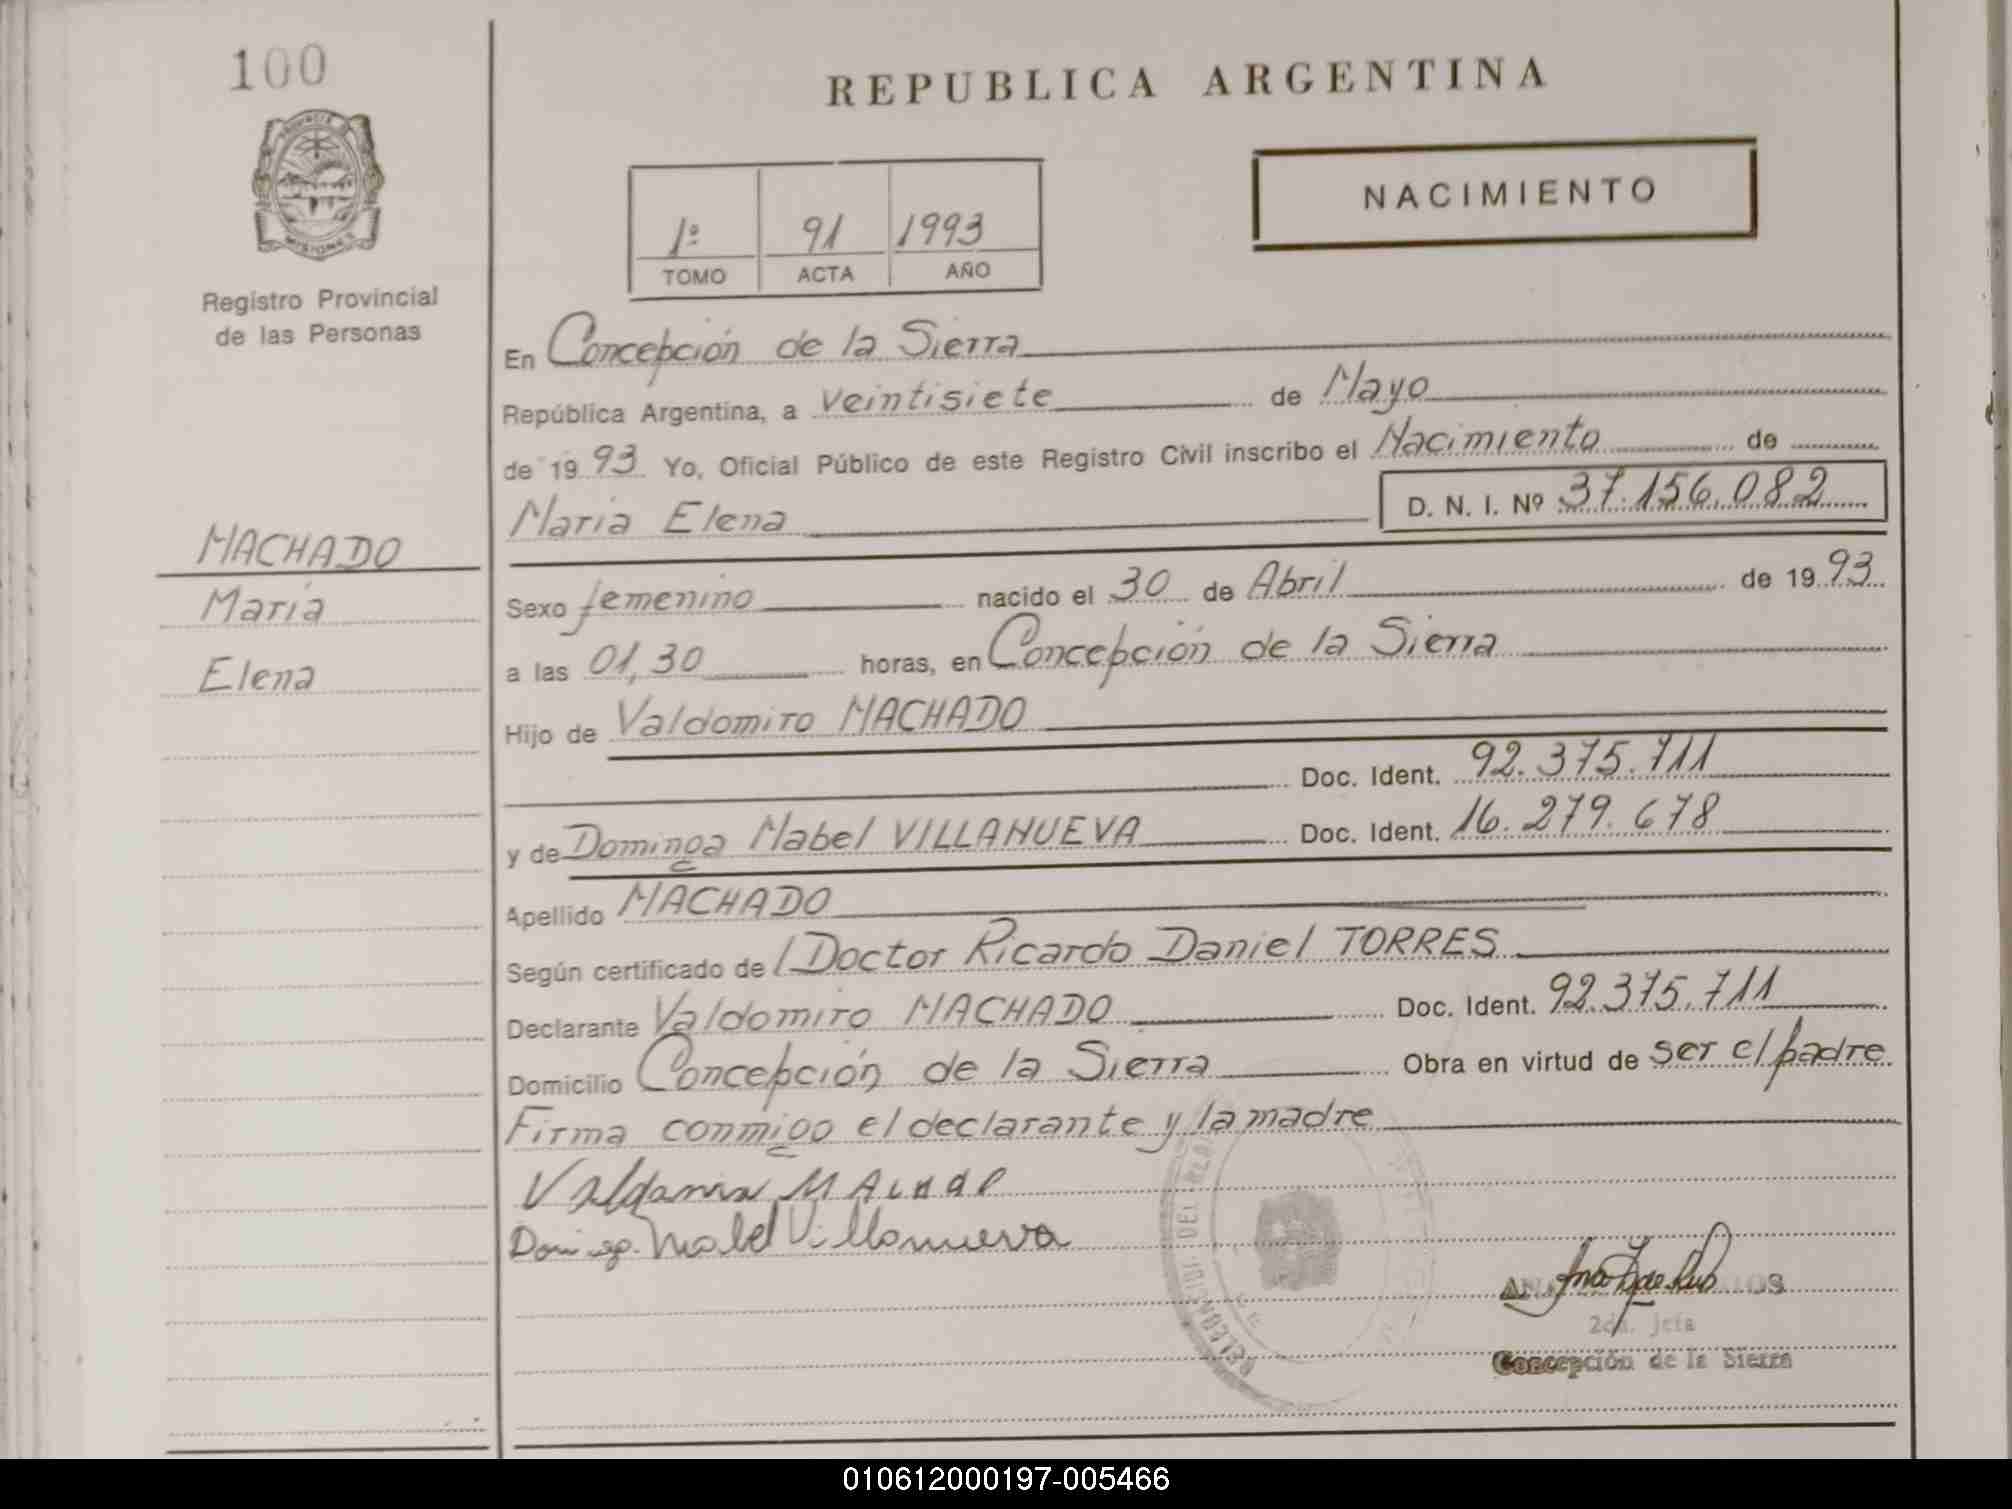 100
REPUBLICA ARGENTINA
PROVINCIA DE
MISIONES
Registro Provincial
de las Personas
NACIMIENTO
1º 91 1993
TOMO ACTA AÑO
En Concepción de la Sierra
República Argentina, a veintisiete de Mayo
de 1993 Yo, Oficial Público de este Registro Civil inscribo el Nacimiento de
María Elena D. N. I. Nº 37.156.082
MACHADO
María
Elena
Sexo femenino nacido el 30 de Abril de 1993
a las 01,30 horas, en Concepción de la Sierra
Hijo de Valdomiro MACHADO
Doc. Ident. 92.375.711
y de Dominga Mabel VILLANUEVA Doc. Ident. 16.279.678
Apellido MACHADO
Según certificado del Doctor Ricardo Daniel TORRES
Declarante Valdomiro MACHADO Doc. Ident. 92.375.711
Domicilio Concepción de la Sierra Obra en virtud de ser el padre
Firma conmigo el declarante y la madre
Mabel Villanueva
2da. Jefa
Concepción de la Sierra
010612000197-005466